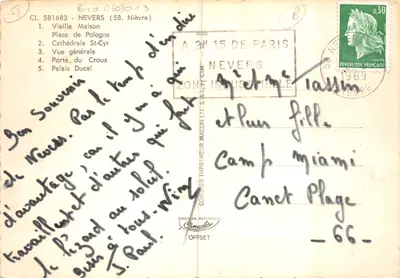 CI. 581683 - NEVERS (58. Nièvre)
1. Vieille Maison
Place de Pologne
2. Cathédrale St-Cyr
3. Vue générale
4. Porte du Croux
5. Palais Ducal
A 2H 15 DE PARIS
NEVERS
ZONE INDUSTRIELLE
0,30
1969
Bon Souvenir
de Nevers. Pas le temps d'en dire
d'avantage, car il y en a qui
travaillent et d'autres qui font
le lézard au soleil.
Bises à tous.
J. Paul.
Mr et Mme Tassin
et leur fille
Camp Miami
Canet Plage
- 66 -
COMBIER IMPRIMEUR MACON
OFFSET